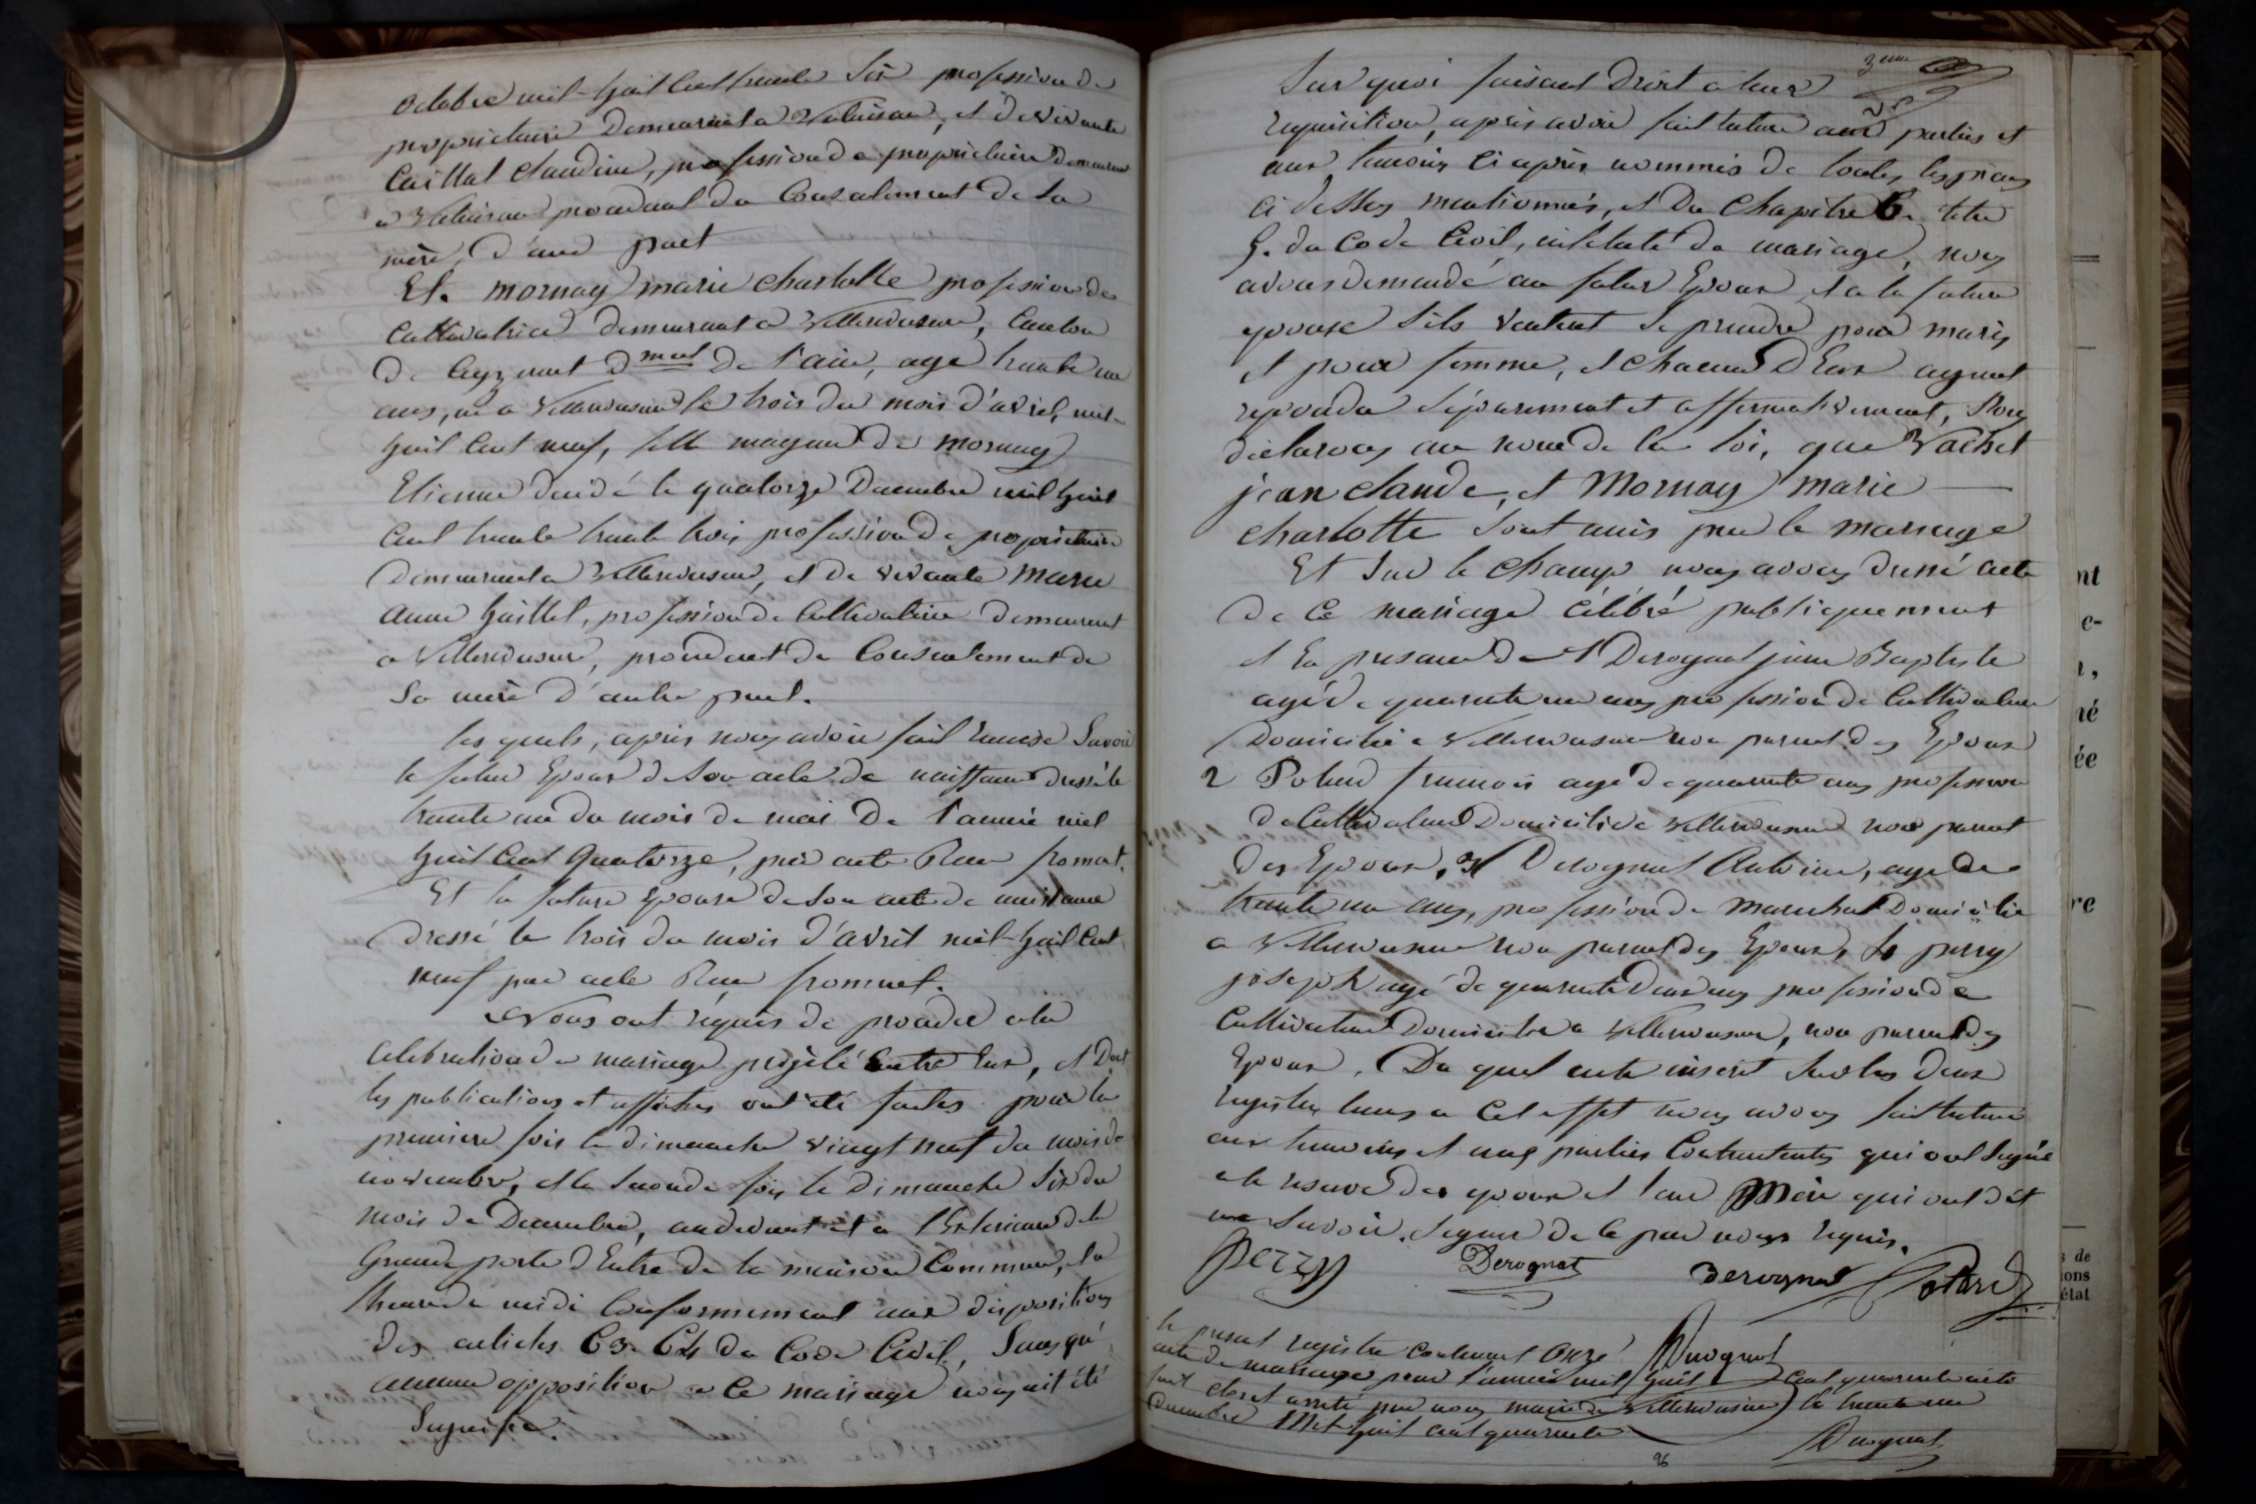 octobre mil-huit cent trente Six profession de
propriétaire demeurant a , et de vivante
Caillat Claudine, profession de propriétaire demeurant
a procédant du Consentement de Sa
mère, d'une part
Et. mornay marie charlotte profession de
Cultivatrice demeurant a Villereversure, Canton
de Ceyzeriat Dment de l'ain, agé trente un
ans, né a Villereversure le trois du mois d'avril, mil-
huit cent neuf, fille majeure de mornay
Etienne décidé le quatorze Décembre mil huit
cent trente trente trois profession de propriétaire
demeurant a Villereversure, et de vivante marie
anne guillet, profession de Cultivatrice demeurant
a Villereversure, procédent de Consentement de
Sa mère d'autre part.
les quels, après nous avoir fait remise Savoir
le futur Epoux de Son acte de naissance dressé le
trente un du mois de mai De l'année mil
huit Cent Quatorze, par acte Reçu froment.
Et la future Epouse de Son acte de naissance
dressé le trois du mois d'avril mil-huit Cent
neuf par acte Reçu froment.
Nous ont réquis de procéder a la
célébration du mariage projeté entre Eux, et Dont
les publications et affiches ont été faites pour la
première fois le dimanche vingt neuf du mois de
novembre, et la Seconde fois le Dimanche Six du
mois de Décembre, audevant et a l'Exterieure de la
Grande porte d'Entre de la maison Commune, a
l'heure de midi Conformément aux dispositions
des articles 63. 64 du Code Civil, Sans qu'
aucune opposition a Ce mariage n'ayait été
Signifié.
3eme
Sur quoi faisant Droit a leur
réquisition, après avoir fait lecture aux parties et
aux temoins Ci après nommés de toutes les pièces
Ci dessus mentionnés, et Du Chapitre 6. titre
5. du Code Civil, intitulé du mariage, nous
avons demandé au futur Epoux et a la future
epouse S'ils veulent Se prendre pour maris
et pour femme, et chacun D'Eux ayant
repondu Séparément et affirmativement, Nous
déclarons au nom de la loi, que Vachet
jean claude, et Mornay marie
charlotte Sont unis par le mariage
Et Sur le Champ nous avons dressé acte
de Ce mariage Célébré publiquement
et En presence de 1 Derognat jean Baptiste
agé de quarante un ans profession de Cultivateur
Domicilié a Villereversure non parent des Epoux
2 Potard francois agé de quarante ans profession
de Cultivateur Domicilié a Villereversure non parent
des Epoux, 3 Derognat Antoine, agé de
trente un ans, profession de marechal Domicilié
a Villereversure non parent des Epoux, 4 perry
joseph agé de quarante Deux ans profession de
Cultivateur Domicilié a Villereversure, non parent des
Epoux. Du quel acte inscrit Sur les Deux
registres tenus a Cet effet nous avons fait lecture
aux temoins et aux parties Contractantes qui ont Signé
a la reserve des epoux et leur Mère qui ont dit
ne Savoir Signer de Ce par nous requis.
perry Derognat derognat Potard
le present registre Contenant Onze Derognat
acte de mariage pour l'année mil huit Cent quarante
clos et arreté par nous maire de Villereversure le trente un
decembre Mil huit cent quarante
Derognat
96
nt
c-
r,
né
ée
re
s de
ions
état